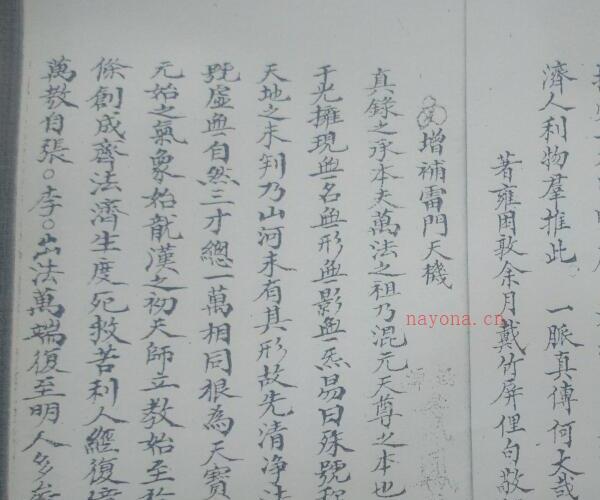 濟人利物羣推此 一脈真傳何大哉
著雍困敦余月戴竹屏俚句敬
增補雷門天機
真錄之承本夫萬法之祖乃混元天尊之本也
于光擁現無名無形無影無炁易曰殊號
天地之未判乃山河未有其形故先清净法
既虛無自然三才總一萬相同根為天寶
元始之氣象始龍漢之初天師立教始至
條創成齊法濟生度死救苦利人經復
萬教自張○李○出法萬端復至明人多
nayona.cn